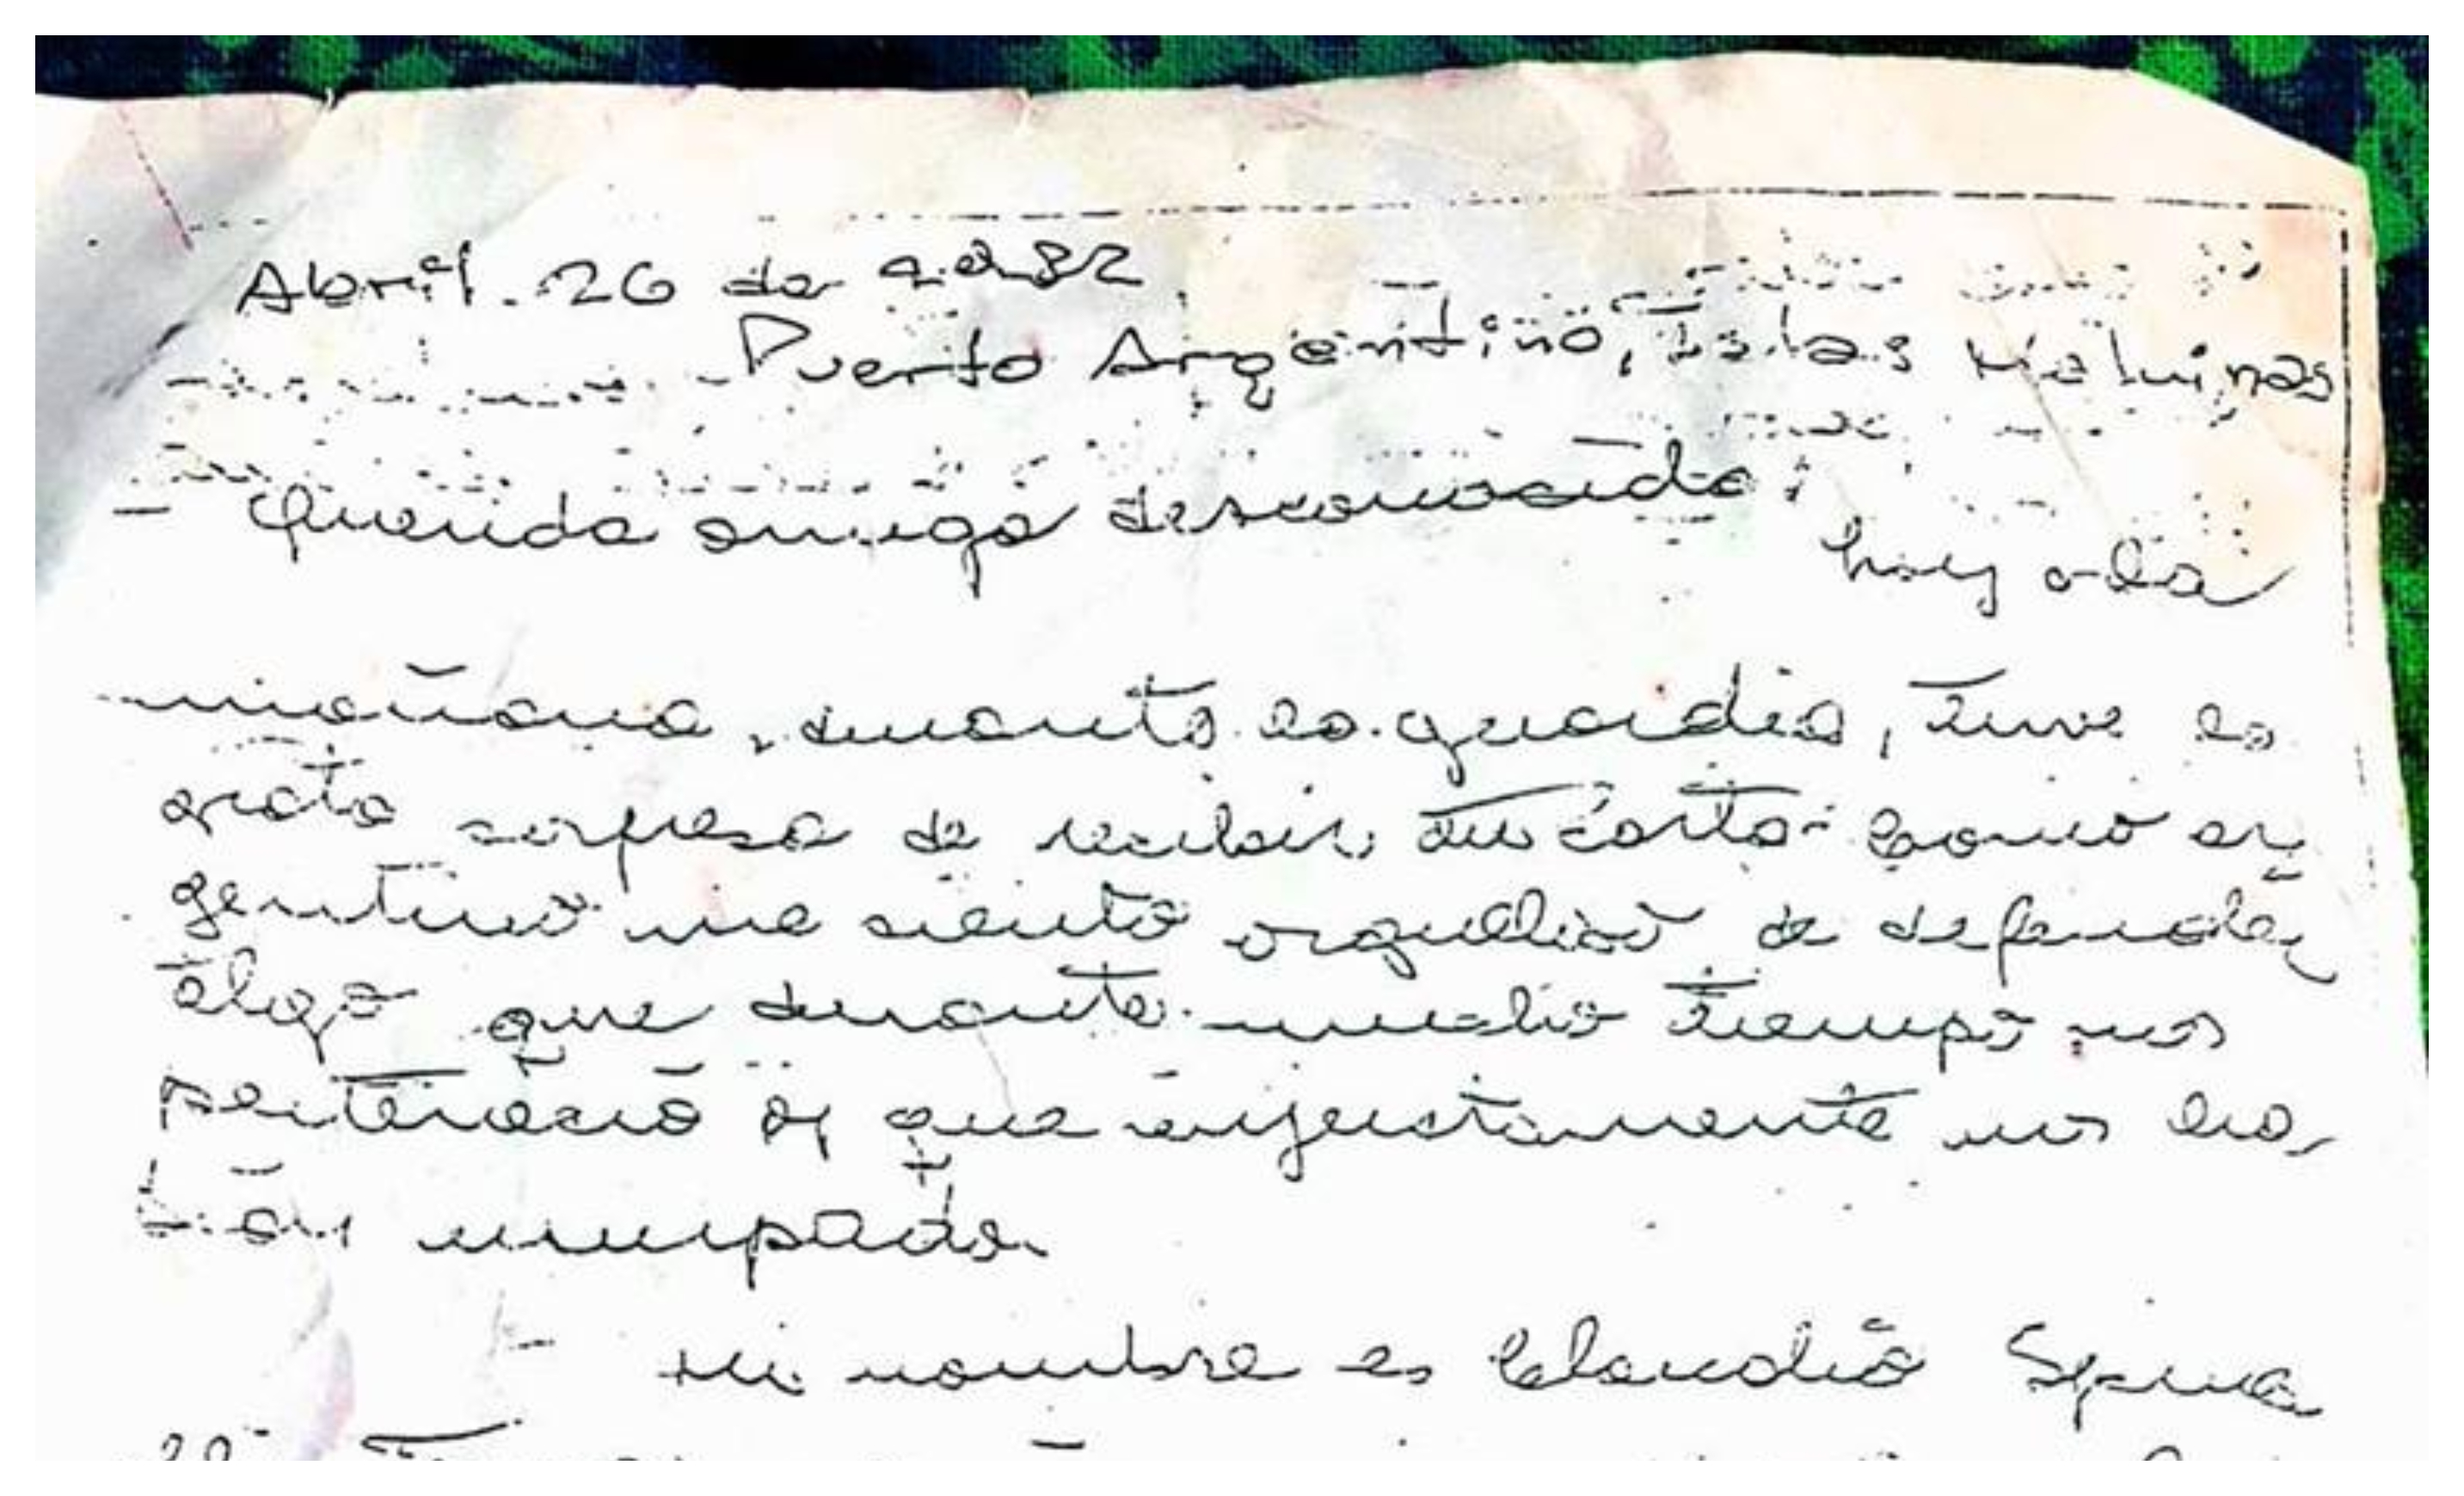 Abril. 26 de 1.982
Puerto Argentino, Islas Malvinas
- Querida amiga desconocida:
hoy a la
mañana, durante la guardia, tuve la
grata sorpresa de recibir tu carta. Como ar
gentino me siento orgulloso de defender
algo que durante mucho tiempo nos
perteneció y que injustamente nos ha,
bían usurpado.
- Mi nombre es Claudio Spina